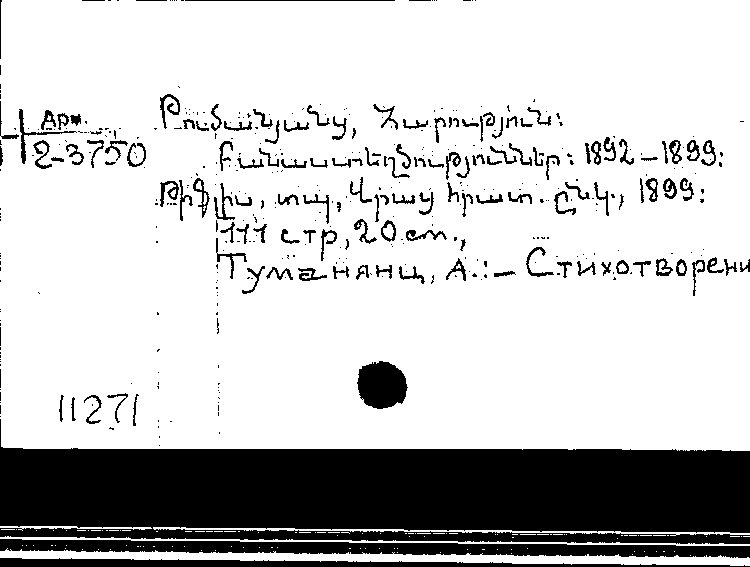 Арм.
2-3750
Թումանյանց, Հարություն:
Բանաստեղծություններ: 1892–1899:
Թիֆլիս, տպ, Վրաց հրատ. ընկ., 1899:
111 стр, 20 cm.,
Туманянц, А.:– Стихотворени
11271